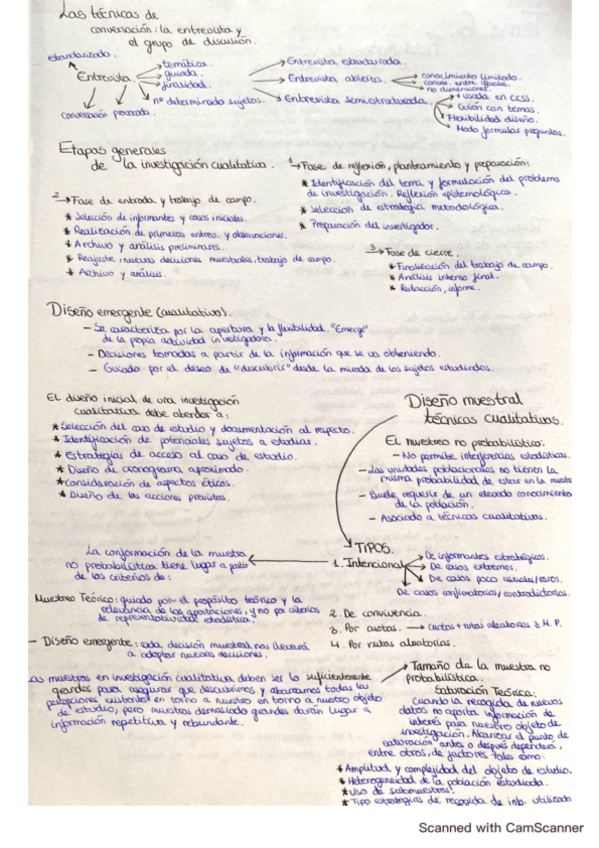 Las técnicas de
conversación: la entrevista y
el grupo de discusión.
estandarizada.
Entrevista
temática.
guiada.
finalidad.
no determinado sujetos.
conversación pausada.
Entrevista estructurada.
Entrevista abierta
conocimiento limitado.
conver. entre iguales.
no dimensiones.
Entrevista semiestructurada
+ usada en CCSS.
Guión con temas.
Flexibilidad diseño.
Modo formular preguntas.
Etapas generales
de la investigación cualitativa.
1 Fase de reflexión, planteamiento y preparación:
* Identificación del tema y formulación del problema
de investigación. Reflexión epistemológica.
* Selección de estrategia metodológica.
* Preparación del investigador.
2 Fase de entrada y trabajo de campo.
* Selección de informantes y casos iniciales.
* Realización de primeras entrev. y observaciones.
* Archivo y análisis preliminares.
* Reajuste, nuevas decisiones muestrales, trabajo de campo.
* Archivo y análisis.
3 Fase de cierre.
* Finalización del trabajo de campo.
* Análisis intenso final.
* Redacción, informe.
Diseño emergente (cualitativo).
- Se caracteriza por la apertura y la flexibilidad. "Emerge"
de la propia actividad investigadora.
- Decisiones tomadas a partir de la información que se va obteniendo.
- Guiado por el deseo de "descubrir" desde la mirada de los sujetos estudiados.
El diseño inicial de una investigación
cualitativa debe abordar a:
* Selección del caso de estudio y documentación al respecto.
* Identificación de potenciales sujetos a estudiar.
* Estrategias de acceso al caso de estudio.
* Diseño de cronograma aproximado.
* Consideración de aspectos éticos.
* Diseño de las acciones previstas.
Diseño muestral
técnicas cualitativas.
El muestreo no probabilístico:
- No permite inferencias estadísticas.
- Las unidades poblacionales no tienen la
misma probabilidad de estar en la muestra
- Puede requerir de un elevado conocimiento
de la población.
- Asociado a técnicas cualitativas.
TIPOS.
1. Intencional
De informantes estratégicos.
De casos extremos.
De casos poco usuales/raros.
De casos confirmatorios/contradictorios.
2. De convivencia.
3. Por cuotas. → Cuotas + rutas aleatorias ≥ M.P.
4. Por rutas aleatorias.
La conformación de la muestra
no probabilística tiene lugar a partir
de los criterios de:
Muestreo Teórico: guiado por el propósito teórico y la
relevancia de las aportaciones, y no por criterios
de representatividad estadística.
- Diseño emergente: cada decisión muestral nos llevará
a adoptar nuevas decisiones.
Las muestras en investigación cualitativa deben ser lo suficientemente
grandes para asegurar que descubrimos y abarcamos todas las
percepciones existentes en torno a nuestro en torno a nuestro objeto
de estudio, pero muestras demasiado grandes darán lugar a
información repetitiva y redundante.
Tamaño de la muestra no
probabilística.
Saturación Teórica:
Cuando la recogida de nuevos
datos no aporta información de
interés para nuestro objeto de
investigación. Alcanzar el punto de
saturación antes o después dependerá,
entre otros, de factores tales como:
* Amplitud y complejidad del objeto de estudio.
* Heterogeneidad de la población estudiada.
* Uso de submuestras.
* Tipo estrategias de recogida de inf. utilizada
Scanned with CamScanner